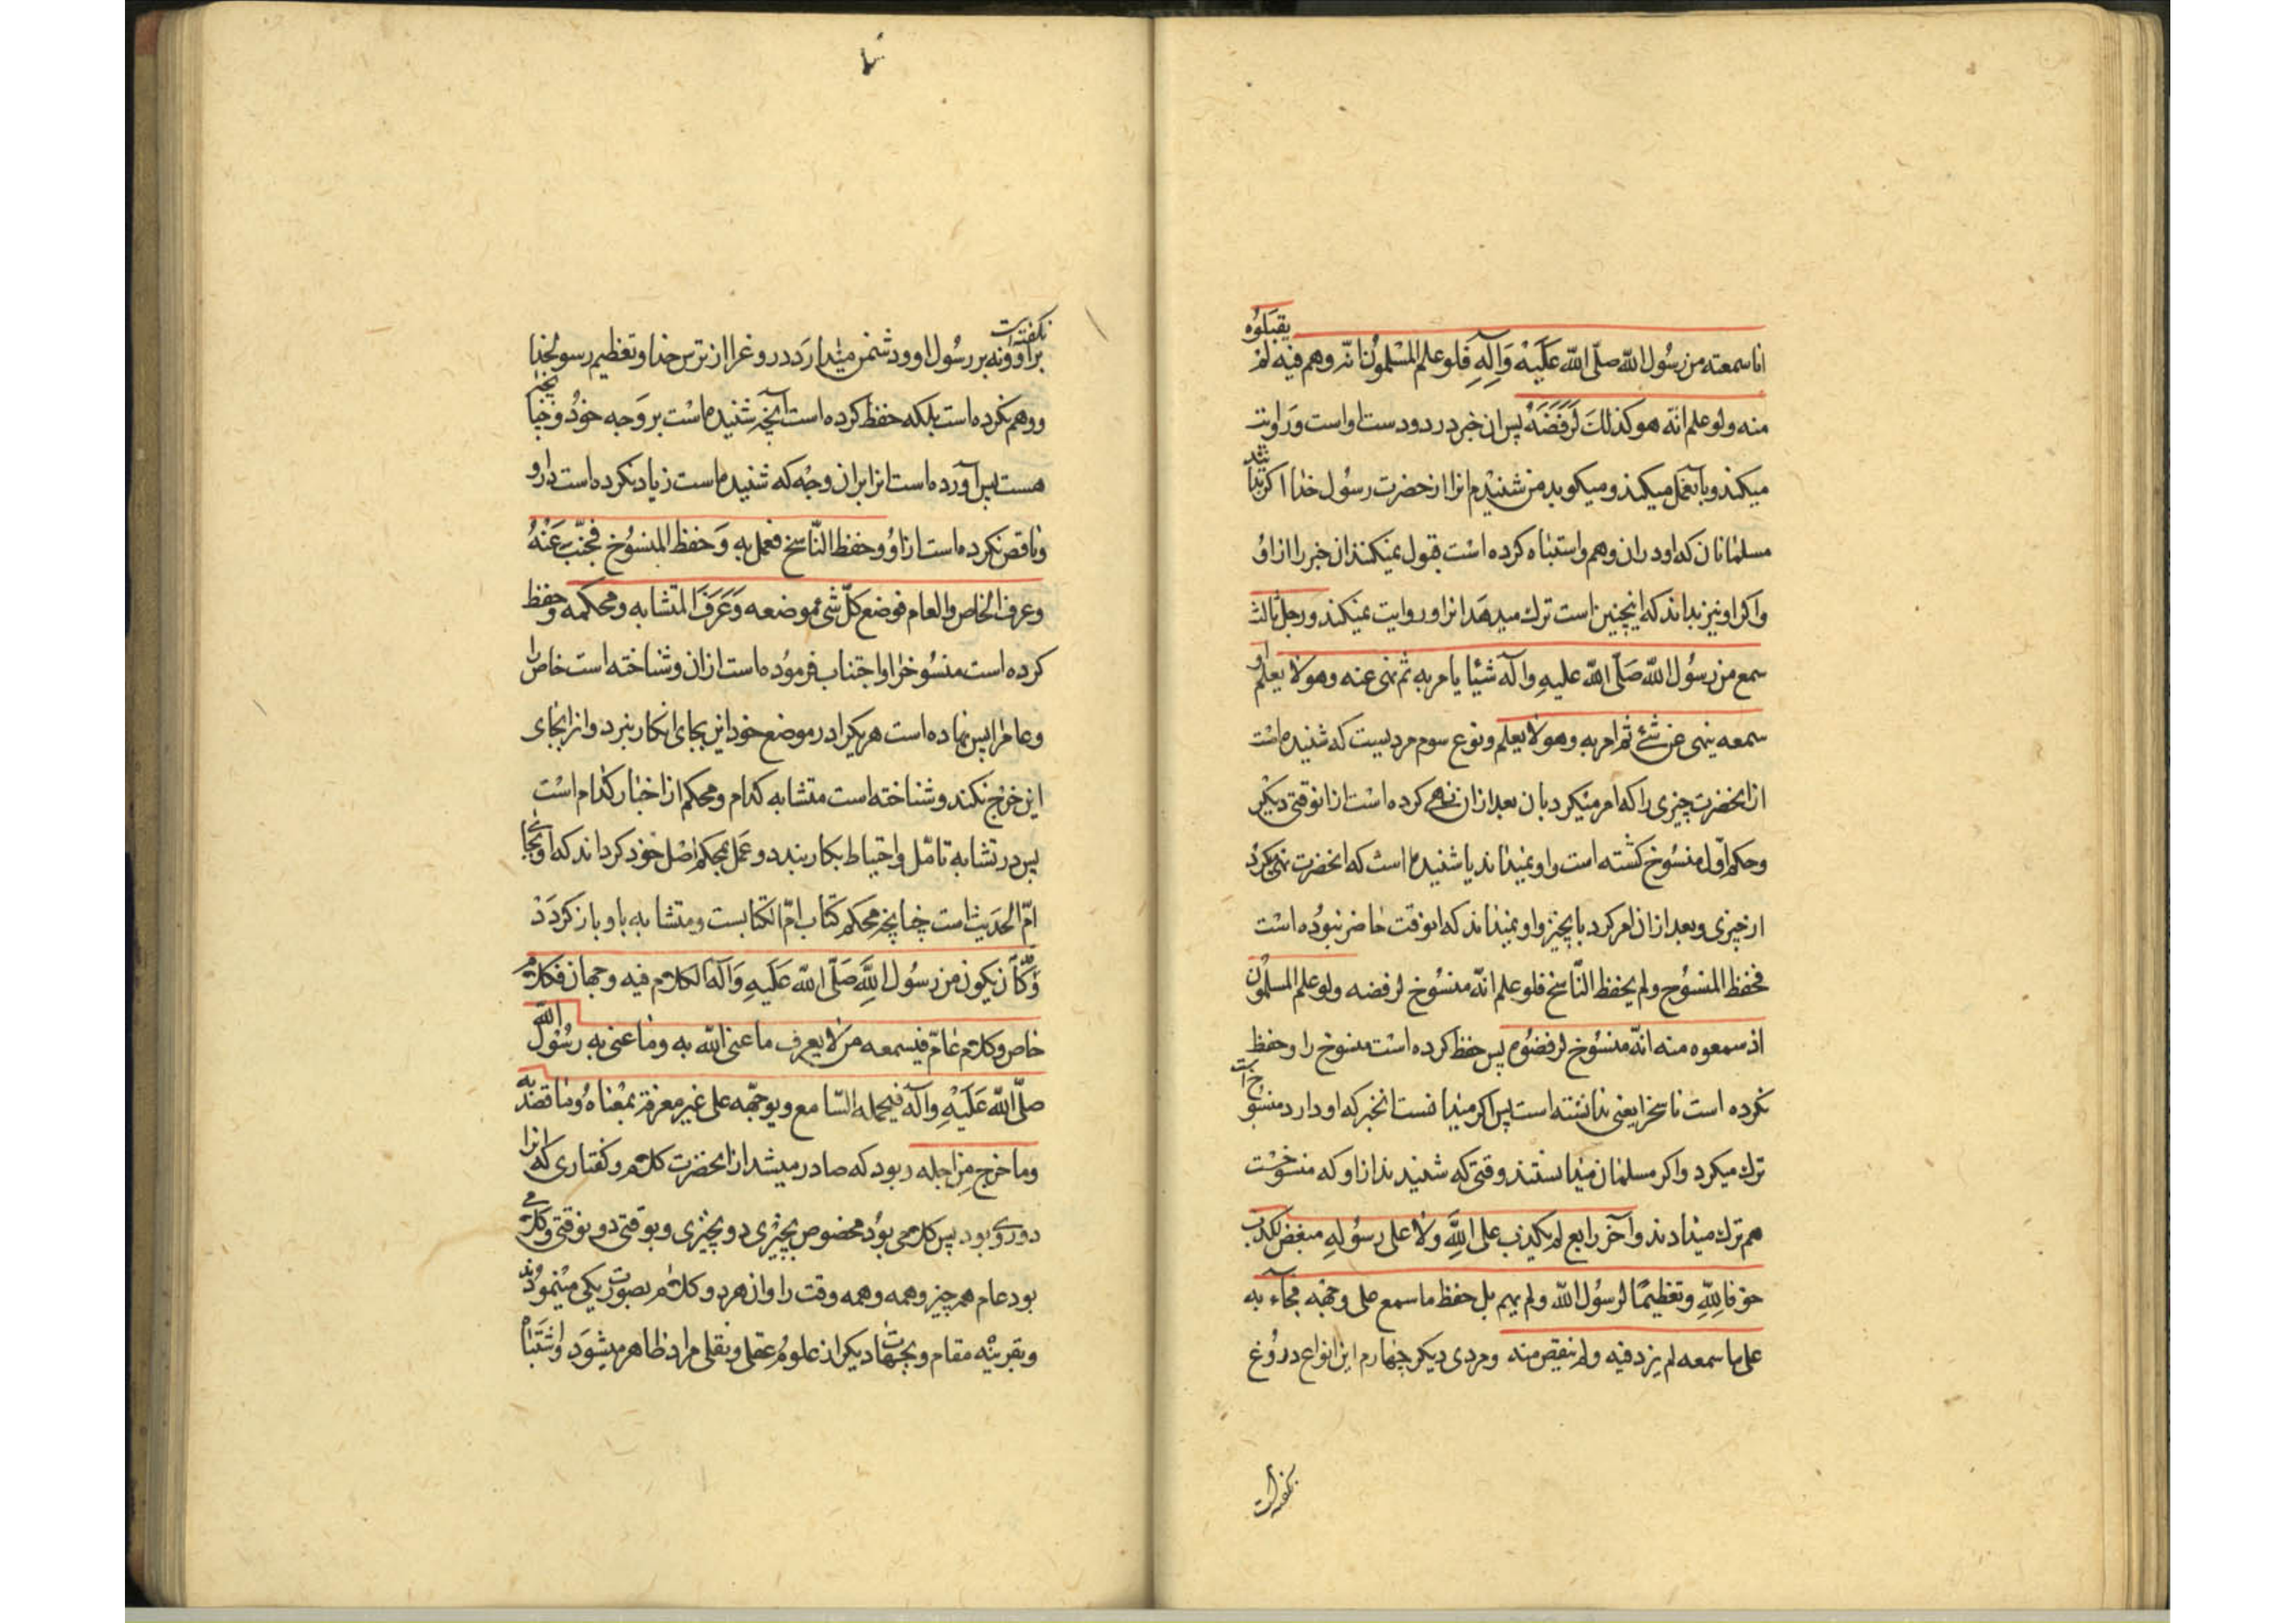 انا سمعته من رسول الله صلّی الله عَلَیْهِ وَآلِهِ فلو علم المسْلموُن انّه وهم فیه لم یقبَلوُه
منه ولو علم انّه هو کذلكَ لَرَفَضَهُ پس ان خبر در دودست اواست وَروایت
میکند وبآن عمل میکند ومیکوید من شنیْدم انرا از حضرت رسول خدا اکر بدانند
مسلمانان که او در ان وهم واشتباه کرده اسْت قبول نمیکنند ان خبر را از اوُ
واکر او نیز بداند که اینچنین است ترك میدهد انرا و روایت نمیکند ورجل ثالث
سمع من رسوُل الله صَلّی الله علیهِ وآله شیئا یامر به ثم نهی عنه وهو لا یعلم او
سمعه ینهی عن شیٔ ثم امر به وهو لا یعلم ونوع سوم مردیست که شنیده اسْت
از انحضرت چیزی را که امر میکرد بان بعد ازان نهی کرده اسْت ازان وقتی دیکر
وحکم اوّل منسُوخ کشته است واو نمیداند یا شنیده است که انحضرت نهی کرد
از چیزی وبعد ازان امر کرد بانچیز واو نمیداند که انوقت حاضر نبوُده اسْت
فحفظ المنسُوخ ولم یحفظ النّاسخ فلو علم انّه منسُوخ لرفضه ولو علم المسلموُن
اذ سمعوه منه انّه منسُوخ لرفضوُه پس حفظ کرده اسْت منسوخ را وحفظ
نکرده است ناسخرا یعنی ندانشته است پس اکر میدانست انخبر که او دارد منسوُخ است
ترك میکرد واکر مسلمانان میدانستند وقتی که شنیدند ازاو که منسوخست
هم ترك میدادند وآخر رابع لم یکذب علی اللّهِ ولا علی رسُولِهِ مبغض للکذب
خوفا للّهِ وتعظیمًا لرسُول اللّه ولم یهم بل حفظ ما سمع علی وجهه فجآء به
علی ما سمعه لم یزد فیه ولم ینقص منه ومردی دیکر چهارم این انواع دروُغ
نکفته است
براو ونه بر رسُول او ودشمن میدارَد دروغرا از ترس خدا وتعظیم رسولخدا
ووهم نکرده است بلکه حفظ کرده است آنچه شنیده اسْت بر وَجه خوُد وچنانچه
هست پس آورده است انرا بران وجْه که شنیده است زیاد نکرده است دراو
وناقص نکرده است ازاوُ وحفظ النّاسخ فعمل به وَحفظ المنسُوخ فجنّب عَنْهُ
وعرف الخاص والعام فوضع کلّ شیٔ موضعه وَعَرَفَ المتشابه ومحکمه وحفظ
کرده است منسُوخرا واجتناب فرموُده است ازان وشناخته است خاص را
وعامرا پس نهاده است هر یکرا در موضع خود این بجای انکار نبرد وانرا بجای
این خرج نکند وشناخته است متشابه کدام ومحکم از اخبار کدام اسْت
پس در تشابه تامّل واحتیاط بکار بندد وعَمل بمحکم اصْل خود کرداند که
امّ الحدَیث است چنانچه محکم کتاب امّ الکتابست ومتشابه باو باز کردَدْ
وَکٰان یکون من رسُول اللّهِ صَلّی الله عَلَیهِ وَآله الکلام فیه وجهان فکلام
خاص وکلام عامّ فیسمعه من لا یعرف ما عنی اللّه به وما عنی به رسُوُل اللّه
صلّی اللّه عَلَیْهِ وآله فیحمله السّامع ویوجّهه علی غیر معرفة بمعْناهُ وما قصد به
وما خرج من اجله وبود که صادر میشد از انحضرت کلام وکفتاری که انرا
دوروی بود پس کلامی بوُد مخصوص بچیْزی دون چیزی وبوقتی دون وقتی وکلامی
بود عام همه چیز وهمه وهمه وقت را وان هردو کلام بصورت یکی مینموُدند
وبقرینْه مقام وبجهات دیکر از علوم عقلی ونقلی مراد ظاهر میشوَد واشتَباه
نکفته است